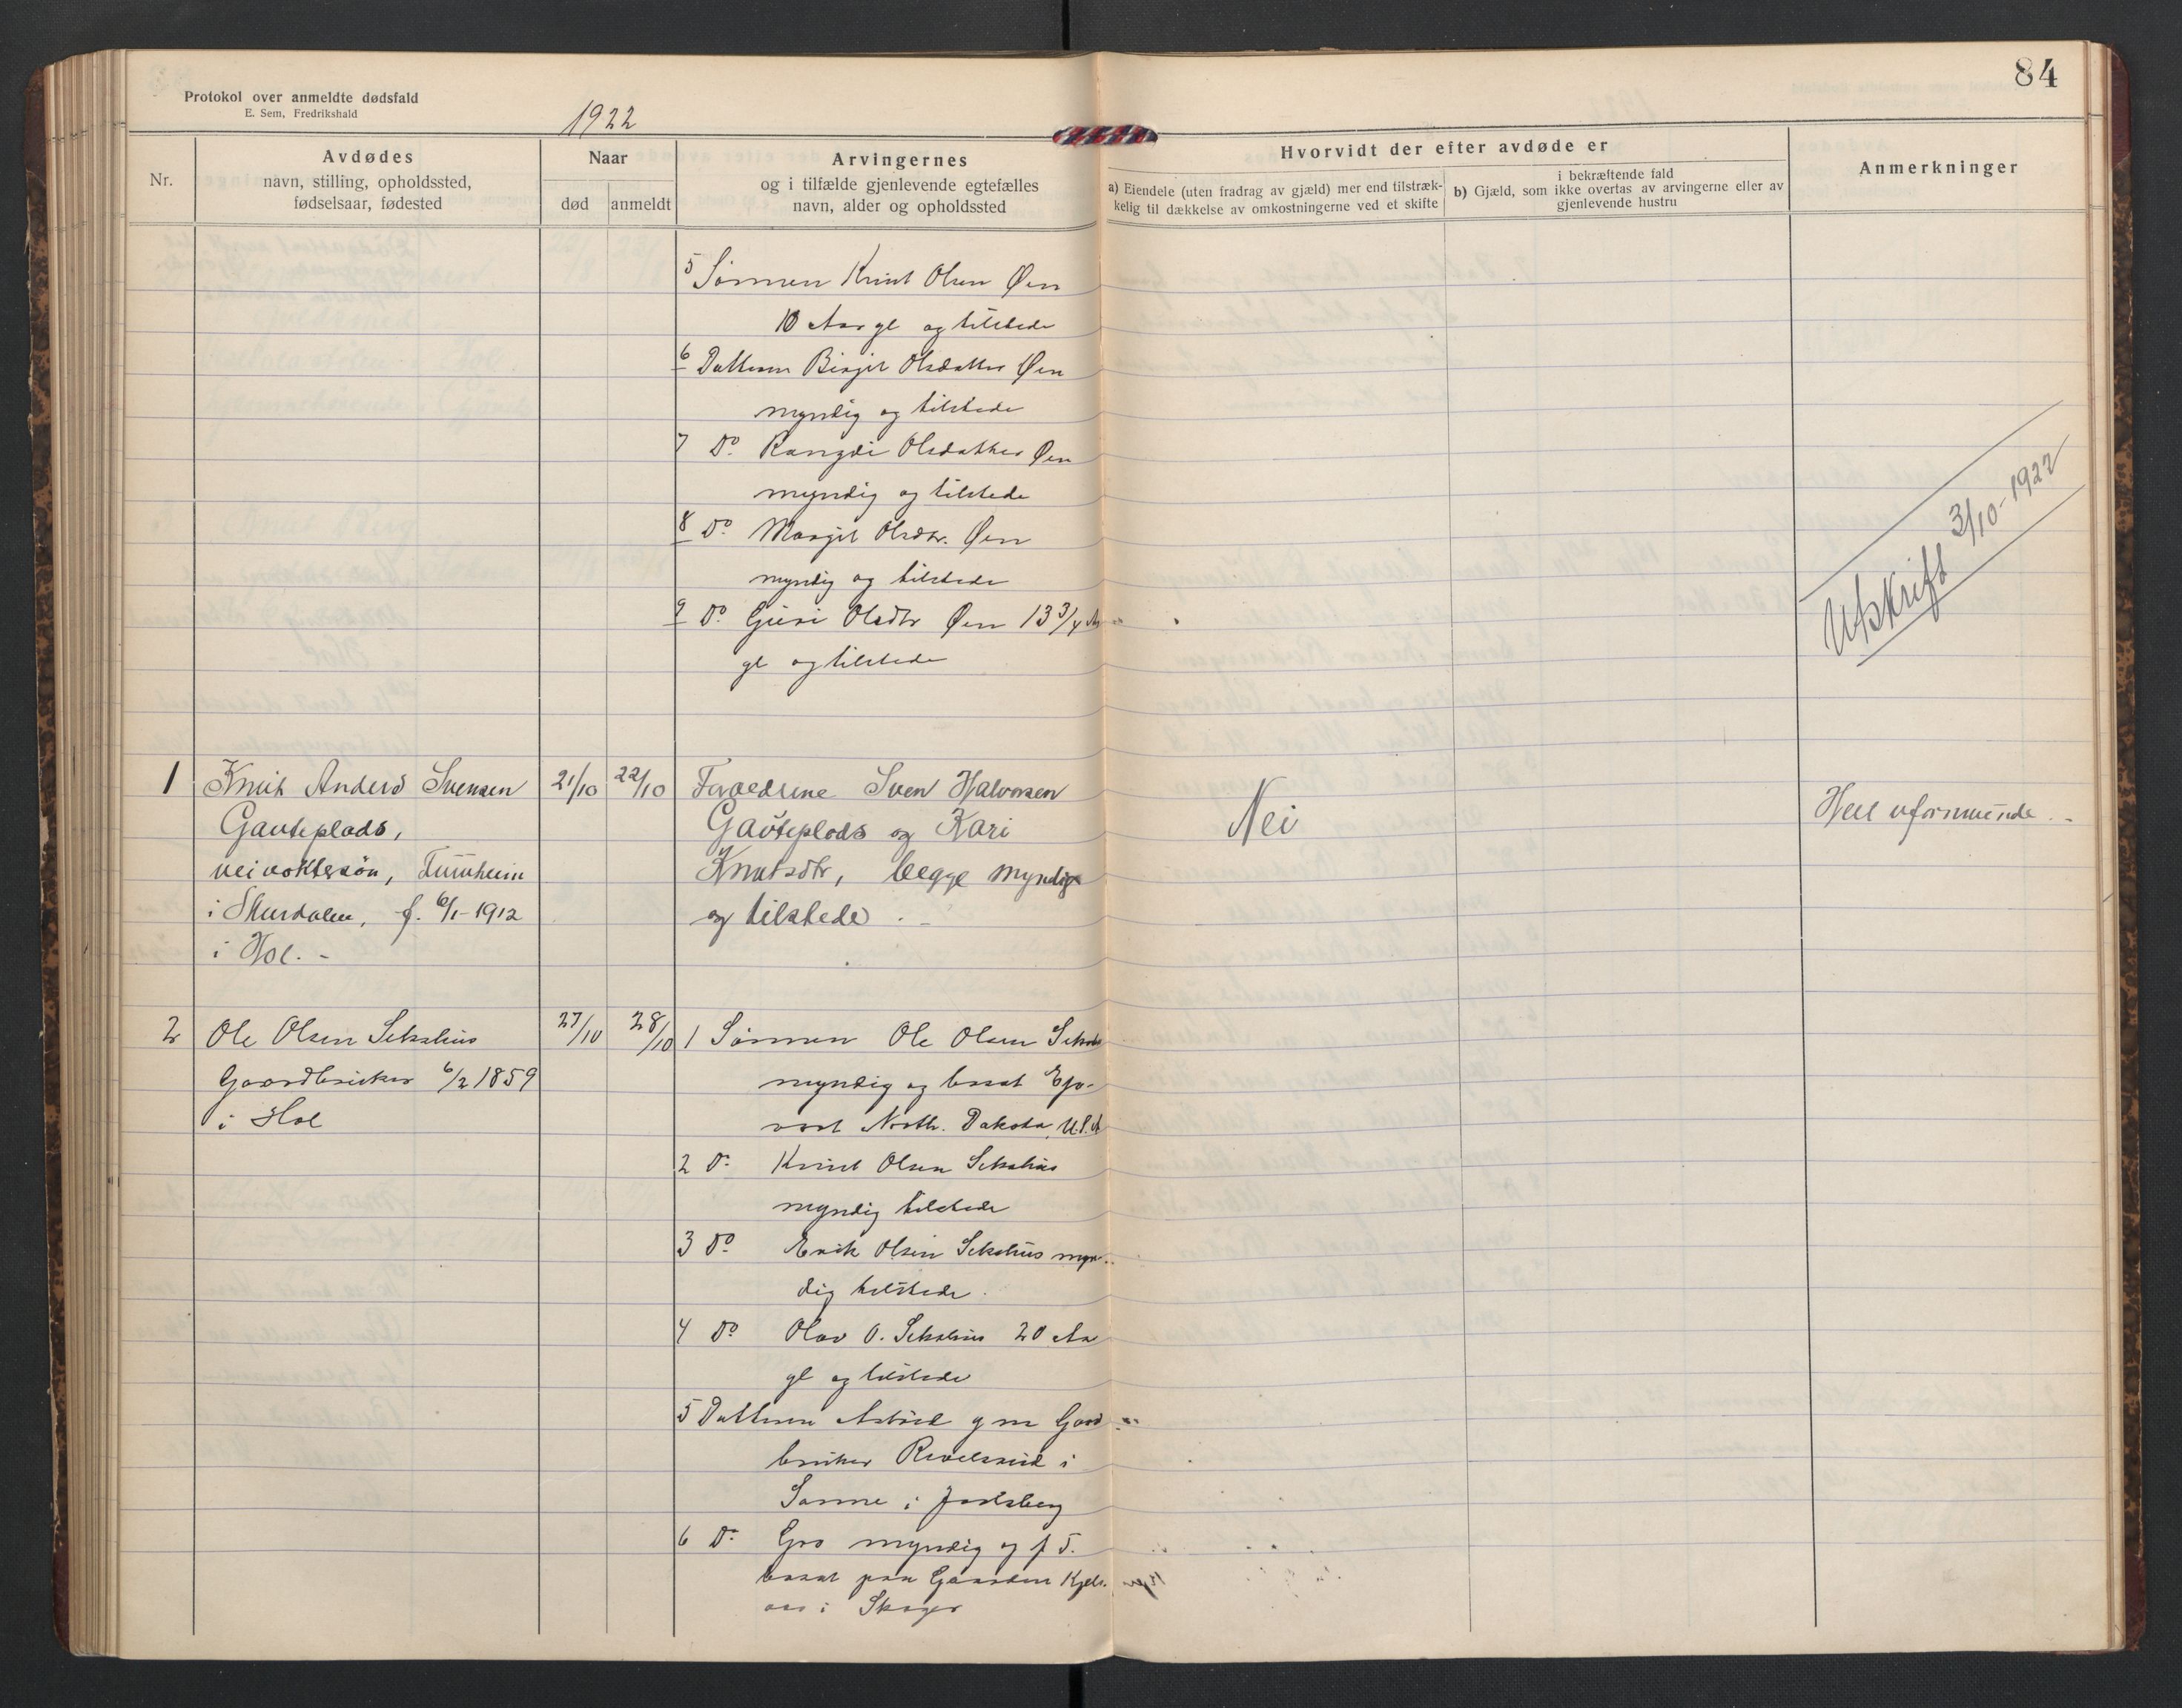 84
Protokol over anmeldte dødsfald
E. Sem, Fredrikshald
1922
Nr.
Avdødes
navn, stilling, opholdssted,
fødselsaar, fødested
Naar
død
anmeldt
Arvingernes
og i tilfælde gjenlevende egtefælles
navn, alder og opholdssted
Hvorvidt der efter avdøde er
a) Eiendele (uten fradrag av gjæld) mer end tilstræk-
kelig til dækkelse av omkostningerne ved et skifte
i bekræftende fald
b) Gjæld, som ikke overtas av arvingerne eller av
gjenlevende hustru
Anmerkninger
5 Sønnen Knut Olsen Øen
10 Aar gl og tilstede
6 Datteren Birgit Olsdatter Øen
myndig og tilstede
7 Do. Rangdi Olsdatter Øen
myndig og tilstede
8 Do. Margit Olsdtr. Øen
myndig og tilstede
9 Do Guri Olsdtr Øen 13 3/4 Aar
gl og tilstede
Utskrift 3/10-1922
1 Knut Anders Svensen
Gauteplads,
veivoktersøn, Tuunheim
i Skurdalen, f. 6/1-1912
i Hol. -
21/10
22/10
Forældrene Sven Halvorsen
Gauteplads og Kari
Knutsdtr, begge myndige
og tilstede . -
Nei
Helt uformuende . -
2 Ole Olsen Sekshus
Gaardbruker 6/2 1859
i Hol
27/10
28/10
1 Sønnen Ole Olsen Sekshus
myndig og bosat
North. Dakota, U.S.A
2 Do. Knut Olsen Sekshus
myndig tilstede
3 Do. Erik Olsen Sekshus myn-
dig tilstede.
4 Do Olav O. Sekshus 20 Aar
gl og tilstede
5 Datteren g m Gaard
bruker i
i Jarlsberg
6 Do. Gro myndig og p T.
bosat paa Gaarden Kjels-
aas i Skoger